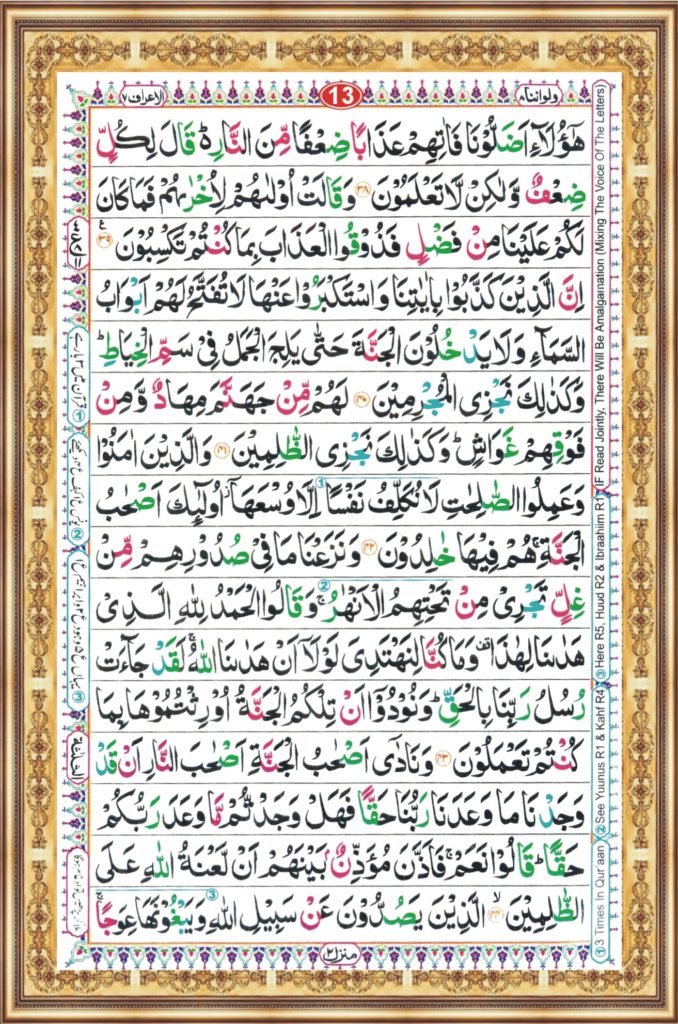 ولواننا ٨
13
الاعراف ٧
هٰۤؤُلَآءِ اَضَلُّوْنَا فَاٰتِهِمْ عَذَابًا ضِعْفًا مِّنَ النَّارِ ؕ قَالَ لِكُلٍّ
ضِعْفٌ وَّلٰكِنْ لَّا تَعْلَمُوْنَ ﴿۳۸﴾ وَقَالَتْ اُوْلٰىهُمْ لِاُخْرٰىهُمْ فَمَا كَانَ
لَكُمْ عَلَيْنَا مِنْ فَضْلٍ فَذُوْقُوا الْعَذَابَ بِمَا كُنْتُمْ تَكْسِبُوْنَ ﴿۳۹﴾ ع
اِنَّ الَّذِيْنَ كَذَّبُوْا بِاٰيٰتِنَا وَاسْتَكْبَرُوْا عَنْهَا لَا تُفَتَّحُ لَهُمْ اَبْوَابُ
السَّمَآءِ وَلَا يَدْخُلُوْنَ الْجَنَّةَ حَتّٰى يَلِجَ الْجَمَلُ فِيْ سَمِّ الْخِيَاطِ ؕ
وَكَذٰلِكَ نَجْزِى الْمُجْرِمِيْنَ ﴿۴۰﴾ لَهُمْ مِّنْ جَهَنَّمَ مِهَادٌ وَّمِنْ
فَوْقِهِمْ غَوَاشٍ ؕ وَكَذٰلِكَ نَجْزِى الظّٰلِمِيْنَ ﴿۴۱﴾ وَالَّذِيْنَ اٰمَنُوْا
وَعَمِلُوا الصّٰلِحٰتِ لَا نُكَلِّفُ نَفْسًا ① اِلَّا وُسْعَهَاۤ اُولٰٓئِكَ اَصْحٰبُ
الْجَنَّةِ ۚ هُمْ فِيْهَا خٰلِدُوْنَ ﴿۴۲﴾ وَنَزَعْنَا مَا فِيْ صُدُوْرِهِمْ مِّنْ
غِلٍّ تَجْرِيْ مِنْ تَحْتِهِمُ الْاَنْهٰرُ ② ۚ وَقَالُوا الْحَمْدُ لِلّٰهِ الَّذِيْ
هَدٰىنَا لِهٰذَا ۫ وَمَا كُنَّا لِنَهْتَدِيَ لَوْلَاۤ اَنْ هَدٰىنَا اللّٰهُ ۚ لَقَدْ جَآءَتْ
رُسُلُ رَبِّنَا بِالْحَقِّ ؕ وَنُوْدُوْۤا اَنْ تِلْكُمُ الْجَنَّةُ اُوْرِثْتُمُوْهَا بِمَا
كُنْتُمْ تَعْمَلُوْنَ ﴿۴۳﴾ وَنَادٰۤى اَصْحٰبُ الْجَنَّةِ اَصْحٰبَ النَّارِ اَنْ قَدْ
وَجَدْنَا مَا وَعَدَنَا رَبُّنَا حَقًّا فَهَلْ وَجَدْتُّمْ مَّا وَعَدَ رَبُّكُمْ
حَقًّا ؕ قَالُوْا نَعَمْ ۚ فَاَذَّنَ مُؤَذِّنٌۢ بَيْنَهُمْ اَنْ لَّعْنَةُ اللّٰهِ عَلَى
الظّٰلِمِيْنَ ﴿۴۴﴾ ۙ الَّذِيْنَ يَصُدُّوْنَ عَنْ سَبِيْلِ اللّٰهِ وَيَبْغُوْنَهَا ③ عِوَجًا ۚ
منزل ٢
① 3 Times In Qur'aan ② See Yuunus R1 & Kahf R4 ③ Here R5, Huud R2 & Ibraahiim R1 (IF Read Jointly, There Will Be Amalgamation (Mixing The Voice Of The Letters)